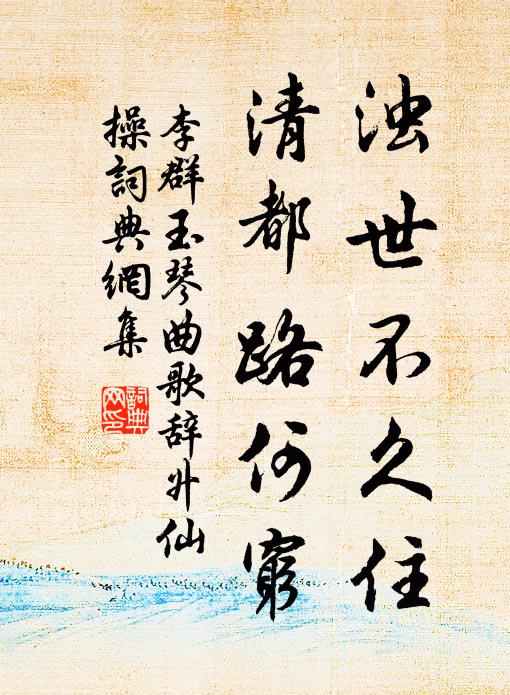 浊世不久住
清都路何窮
李群玉琴曲歌辞升仙
操詞典網集
詞典
网印